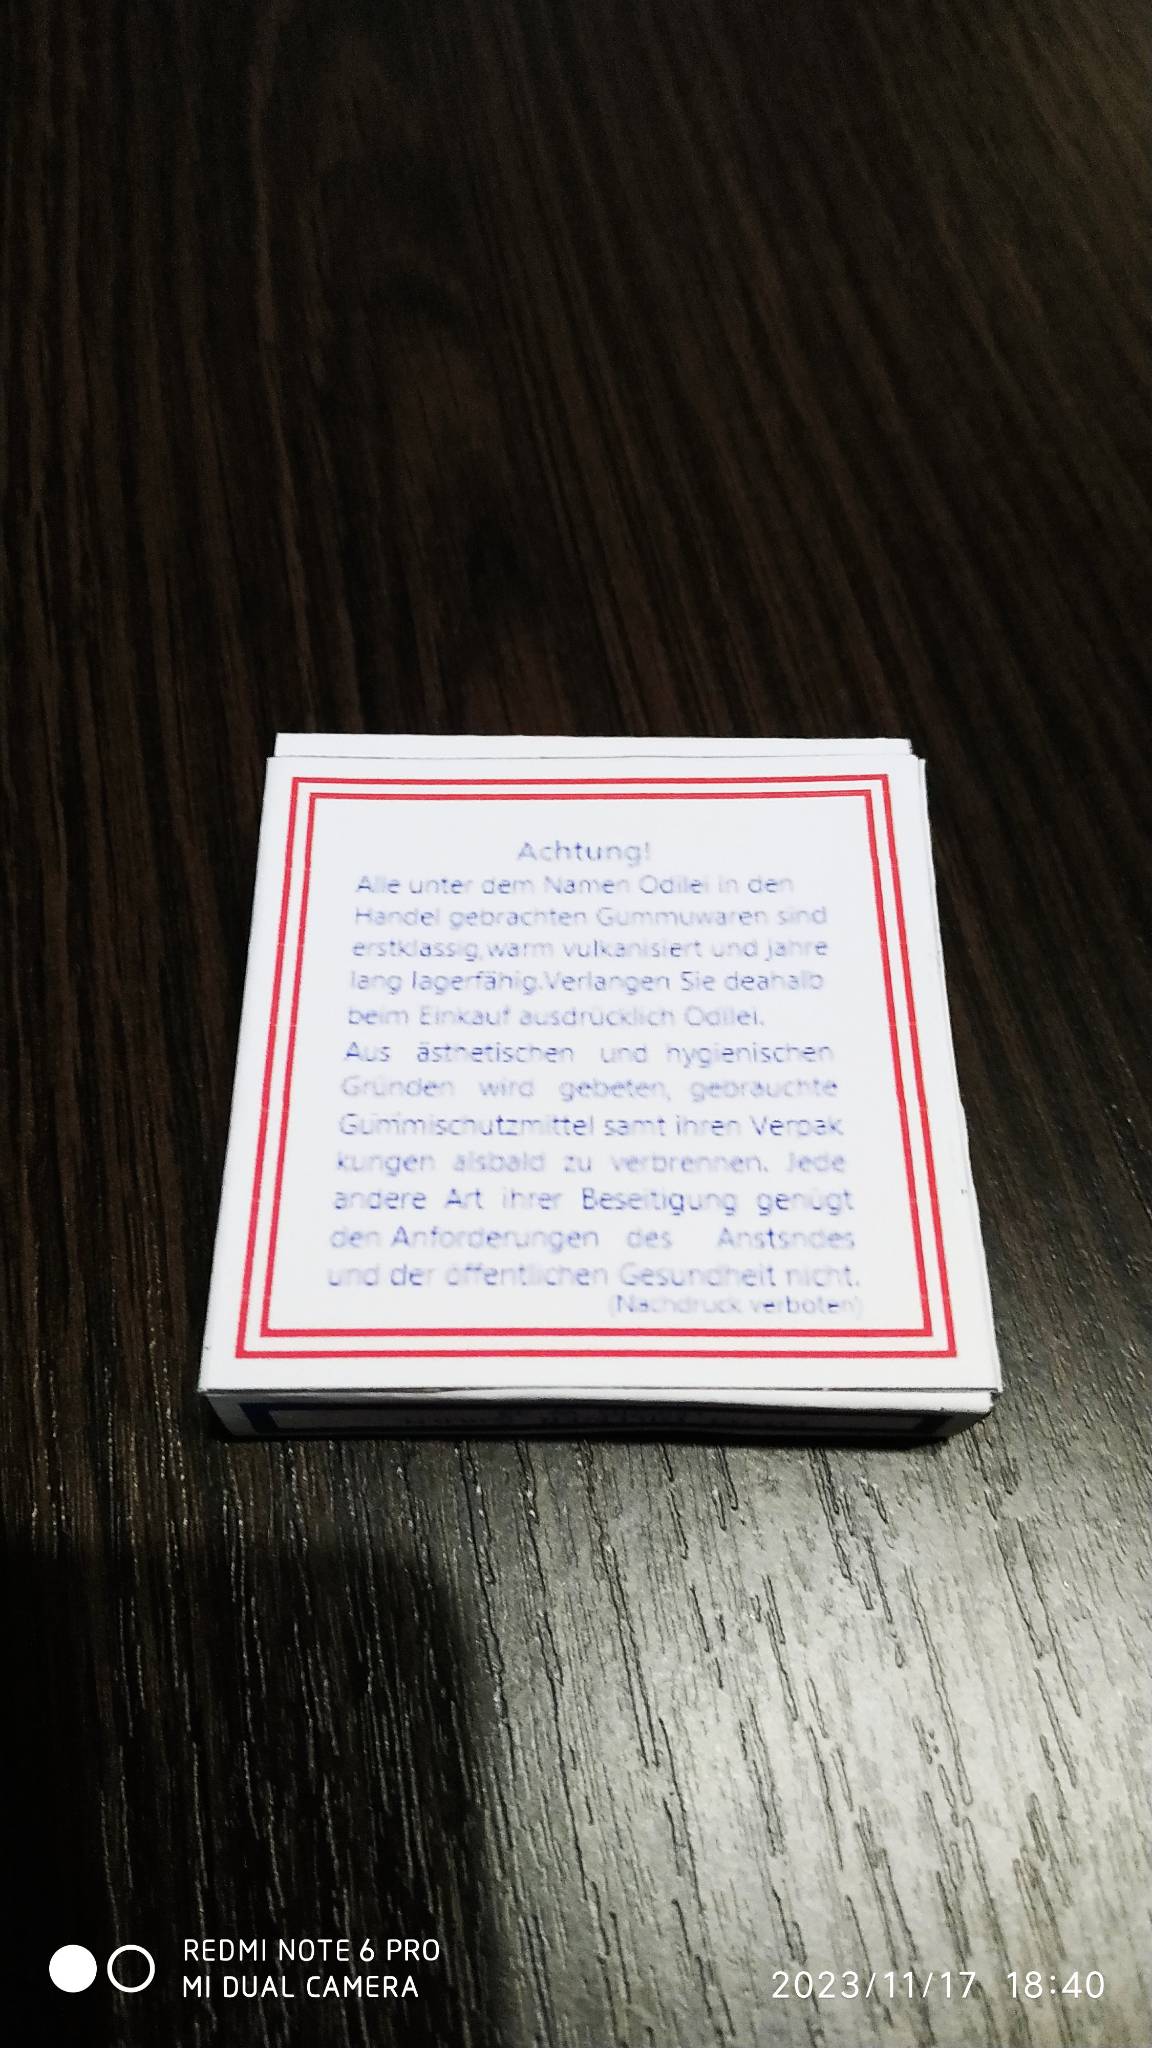 Achtung!
Alle unter dem Namen Odilei in den
Handel gebrachten Gummuwaren sind
erstklassig,warm vulkanisiert und jahre
lang lagerfähig.Verlangen Sie deahalb
beim Einkauf ausdrücklich Odilei.
Aus ästhetischen und hygienischen
Gründen wird gebeten, gebrauchte
Gummischutzmittel samt ihren Verpak
kungen alsbald zu verbrennen. Jede
andere Art ihrer Beseitigung genügt
den Anforderungen des Anstsndes
und der öffentlichen Gesundheit nicht.
(Nachdruck verboten)
REDMI NOTE 6 PRO
MI DUAL CAMERA
2023/11/17 18:40